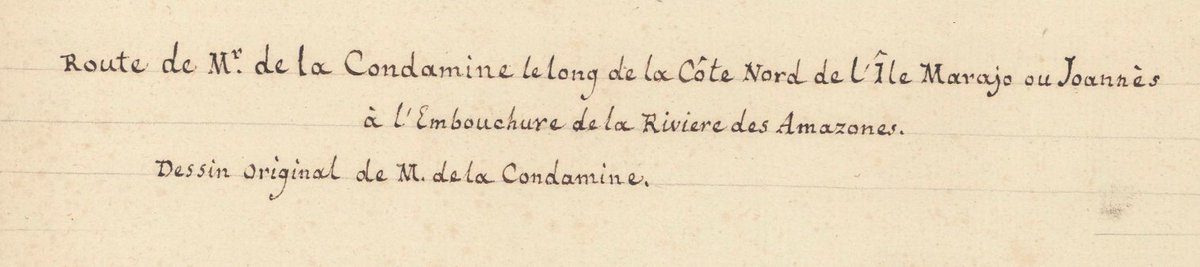 Route de Mr. de la Condamine le long de la Côte Nord de l'Île Marajo ou Joannès
à l'Embouchure de la Riviere des Amazones.
Dessin original de M. de la Condamine.